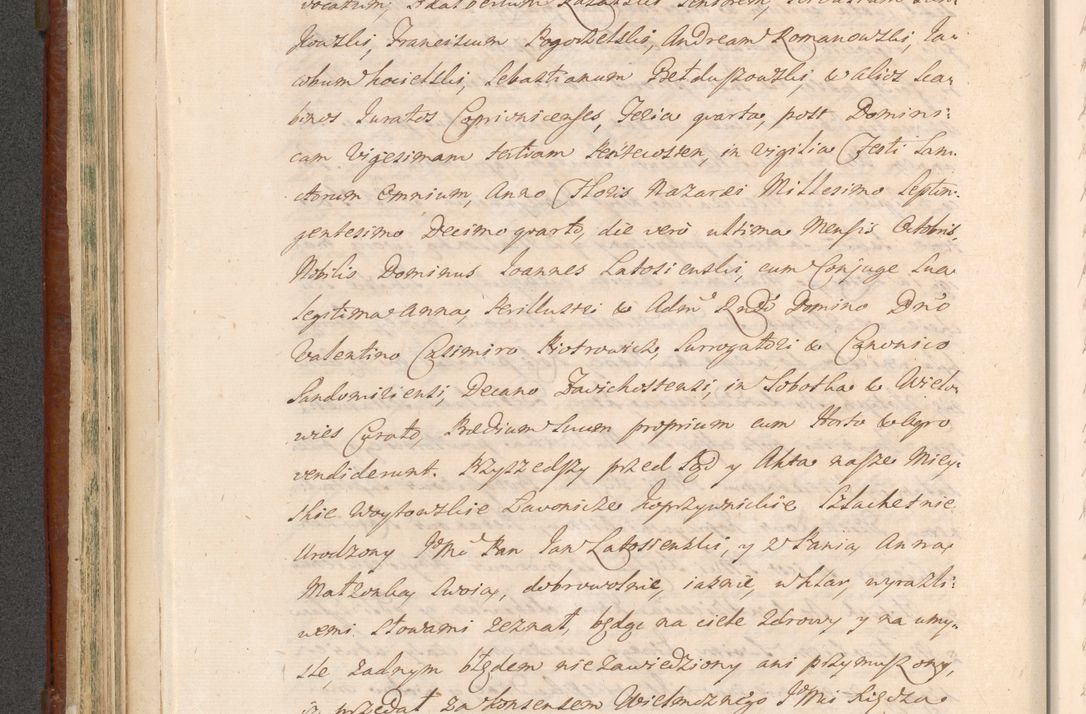 vocatum, Adalbertum Kazalski Seniorem,
kowzki, Franciscum Pogorzelski, Andream Romanowski, Ia-
cobum Kocielski, Sebastianum Bełduszowzki, & alios Sca-
binos Iuratos Coprivnicenses, Feria quarta, post Domini-
cam Vigesimam tertiam Pentecosten, in vigilia Festi San-
ctorum Omnium, Anno Floris Nazarei Millesimo Septin-
gentesimo Decimo quarto, die verò ultima Mensis Octobris,
Nobilis Dominus Ioannes Latosienski, cum Conjuge Sua
legitima Anna, Perillustri & Adm: Rndo Domino Dno
Valentino Casimiro Piotrowicz, Surrogatori & Canonico
Sandomiriensi, Decano Zavichostensi, in Sobotka & Wielo-
wies Curato, Prædium Suum proprium cum Horto & Agro
vendiderunt. Przyszedszy przed Sąd y Akta nasze Miey-
skie Woytowzkie Ławnicze Koprzywnickie Szlachetnie
Urodzony JMć Pan Jan Latossienski, y z Panią Anną
Małżonką Swoią, dobrowolnie, iasnie, wklar, wyrazli-
wemi słowami zeznał, będąc na ciele zdrowy y na umy-
sle, żadnym błędem niezawiedziony ani przymuszony,
iż przedał za konsensem Wielmożnego JMci Xiędza